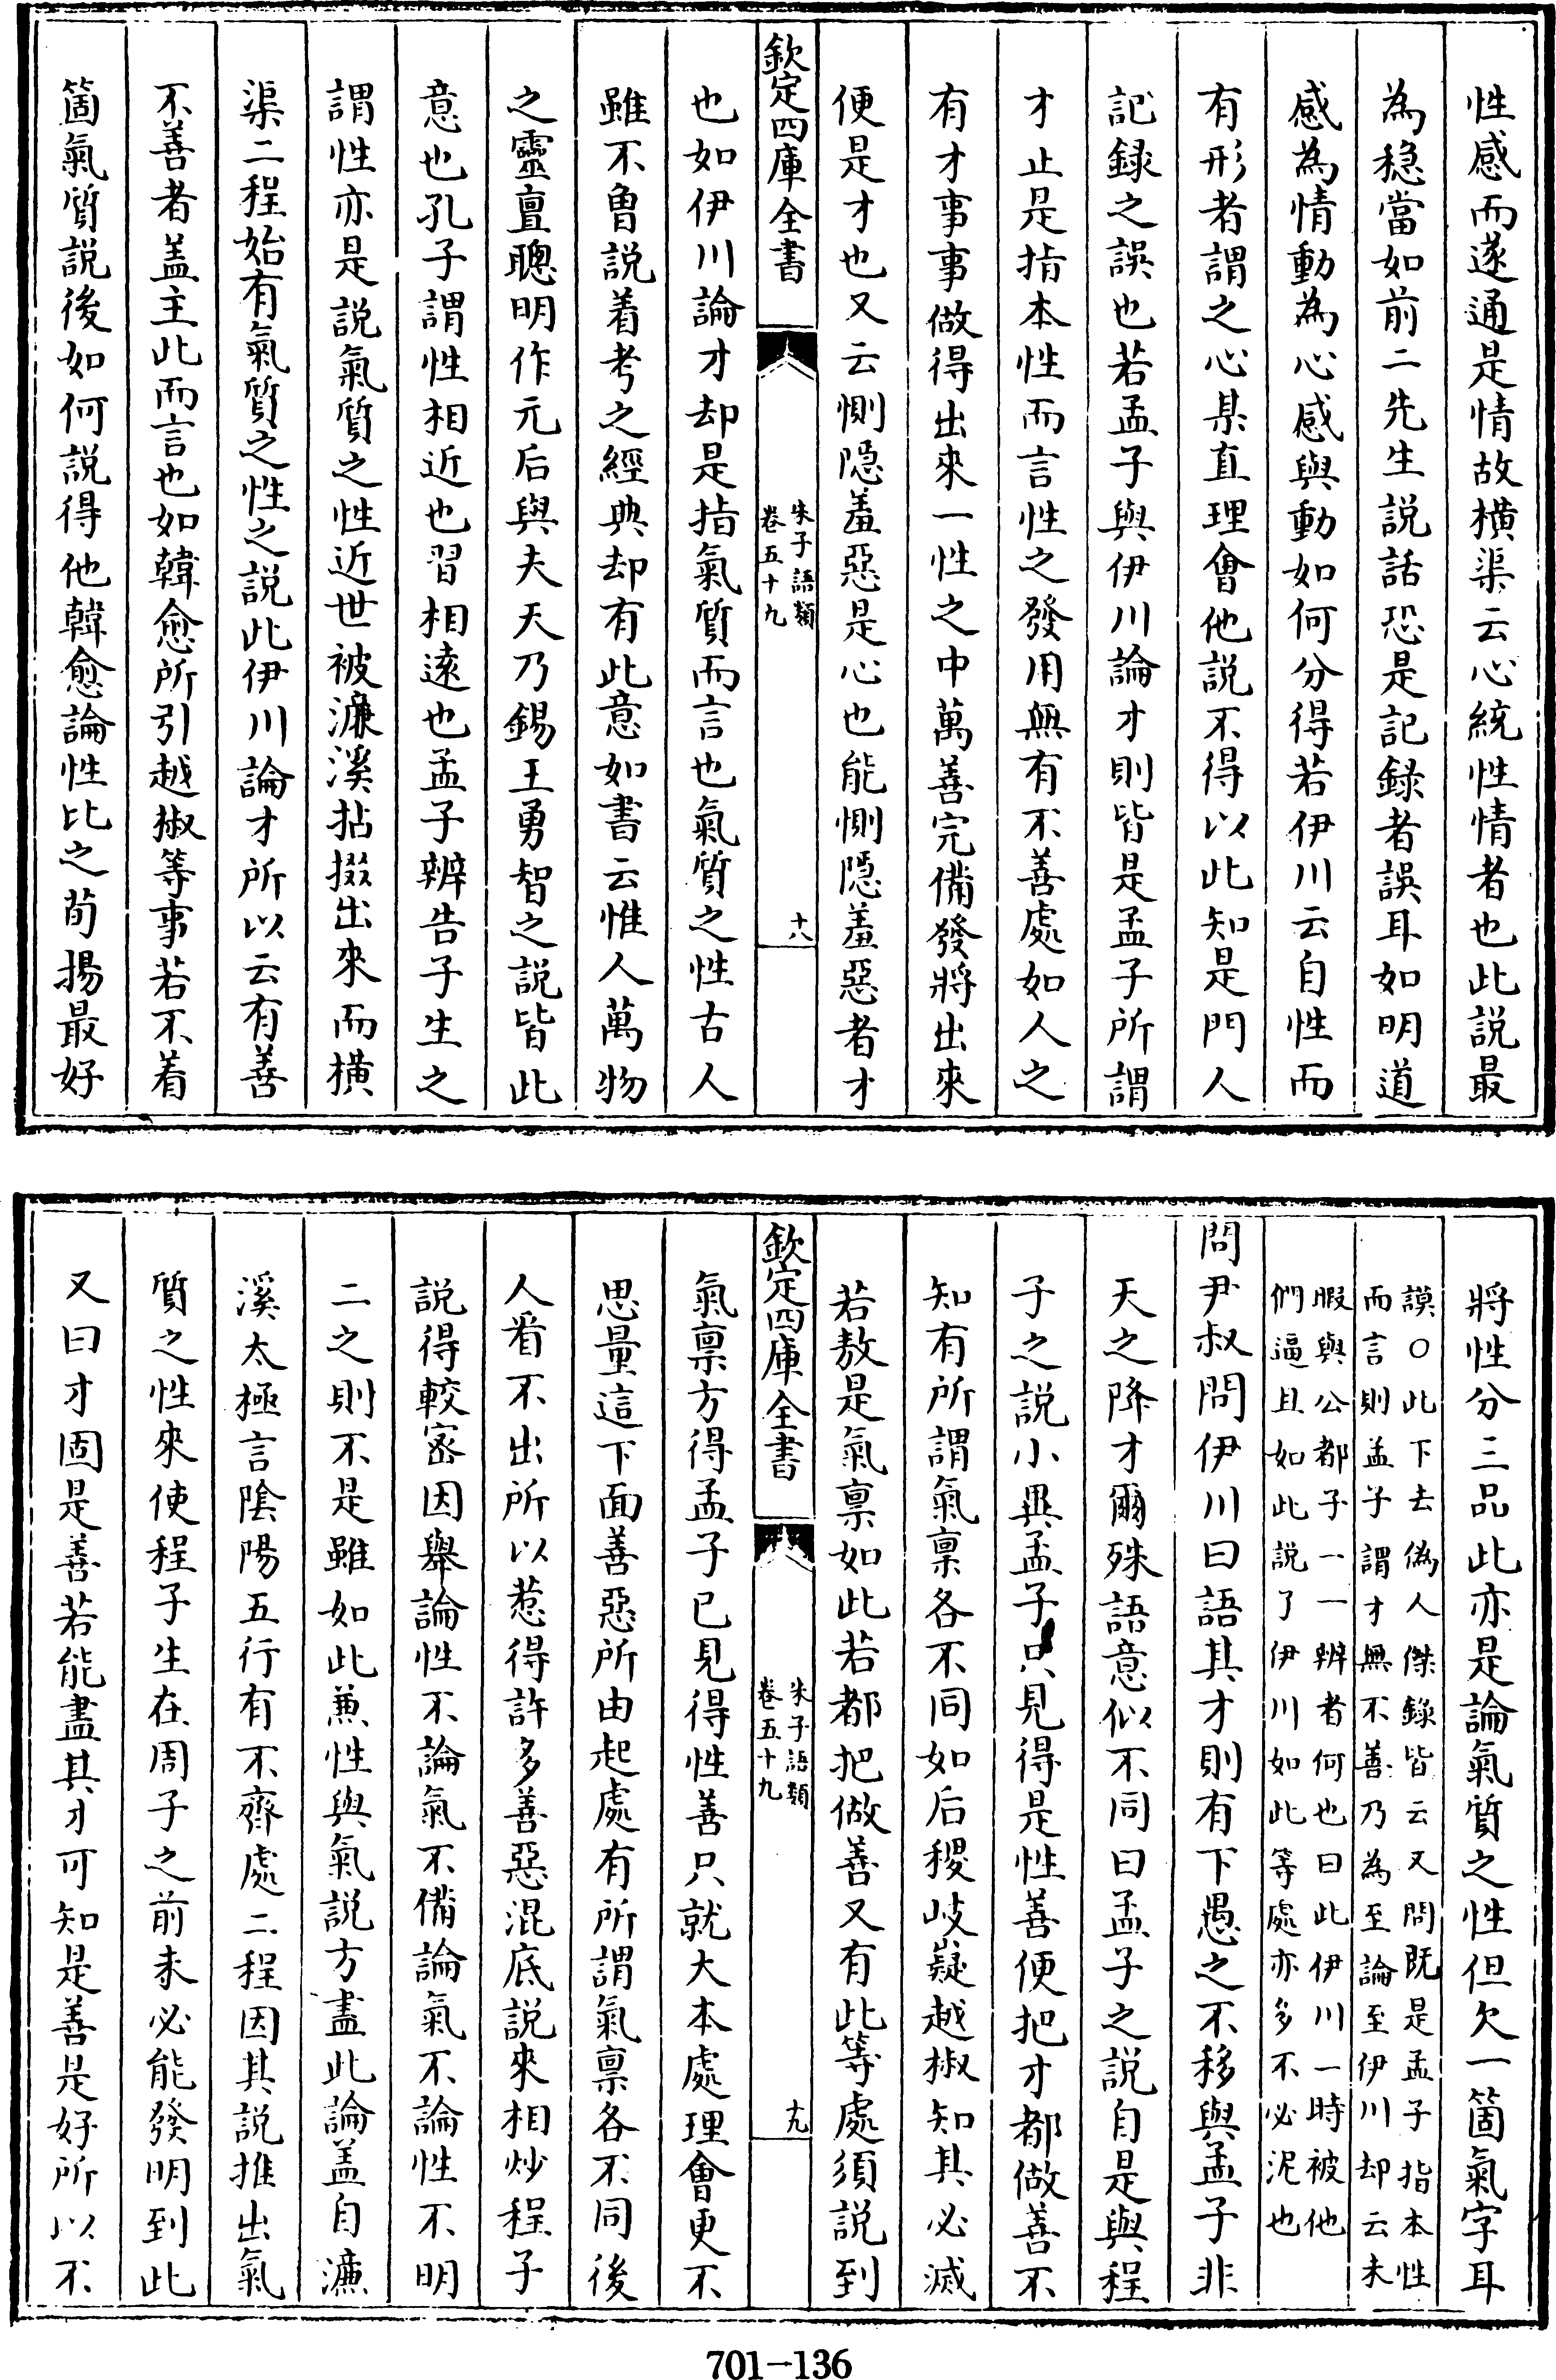 性感而遂通是情故橫渠云心統性情者也此説最
為穏當如前二先生説話恐是記録者誤耳如明道
感為情動為心感與動如何分得若伊川云自性而
有形者謂之心某直理會他説不得以此知是門人
記録之誤也若孟子與伊川論才則皆是孟子所謂
才止是指本性而言性之發用無有不善處如人之
有才事事做得出來一性之中萬善完備發將出來
便是才也又云惻隠羞惡是心也能惻隠羞惡者才
欽定四庫全書
朱子語類
卷五十九
十八
也如伊川論才却是指氣質而言也氣質之性古人
雖不曾説着考之經典却有此意如書云惟人萬物
之靈亶聰明作元后與夫天乃錫王勇智之説皆此
意也孔子謂性相近也習相逺也孟子辨告子生之
謂性亦是説氣質之性近世被濂溪拈掇出來而橫
渠二程始有氣質之性之説此伊川論才所以云有善
不善者盖主此而言也如韓愈所引越椒等事若不着
箇氣質説後如何説得他韓愈論性比之荀揚最好
將性分三品此亦是論氣質之性但欠一箇氣字耳
謨○此下去偽人傑錄皆云又問既是孟子指本性
而言則孟子謂才無不善乃為至論至伊川却云未
暇與公都子一一辨者何也曰此伊川一時被他
們逼且如此説了伊川如此等處亦多不必泥也
問尹叔問伊川曰語其才則有下愚之不移與孟子非
天之降才爾殊語意似不同曰孟子之説自是與程
子之説小異孟子只見得是性善便把才都做善不
知有所謂氣禀各不同如后稷岐嶷越椒知其必滅
若敖是氣禀如此若都把做善又有此等處須説到
欽定四庫全書
朱子語類
卷五十九
十九
氣禀方得孟子已見得性善只就大本處理會更不
思量這下面善惡所由起處有所謂氣禀各不同後
人看不出所以惹得許多善惡混底説來相炒程子
説得較宻因舉論性不論氣不備論氣不論性不明
二之則不是雖如此兼性與氣説方盡此論盖自濂
溪太極言隂陽五行有不齊處二程因其説推出氣
質之性來使程子生在周子之前未必能發明到此
又曰才固是善若能盡其才可知是善是好所以不
701-136